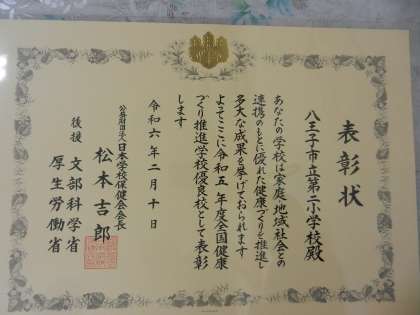 表彰状
八王子市立第二小学校殿
あなたの学校は家庭地域社会との
連携のもとに優れた健康づくりを推進し
多大な成果を挙げておられます
よってここに令和五年度全国健康
づくり推進学校優良校として表彰
します
令和六年二月十日
公益財団法人日本学校保健会会長
松本吉郎
後援 文部科学省
厚生労働省